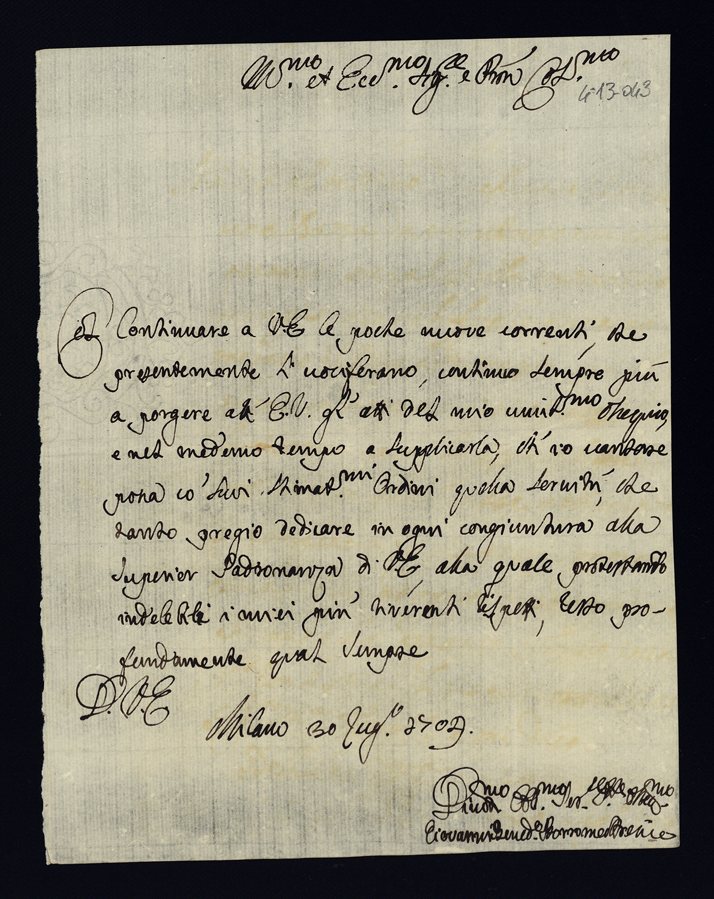 Ill.mo et Ecc.mo Sig.re e Pron Col.mo
4-13-043
Col Continuare a V.E. le poche nuove correnti, che
presentemente si vociferano, continuo sempre più
a porgere all' E.V. gl' atti del mio umil.mo ossequio,
e nel medemo tempo a supplicarla, ch' io vantare
possa co' suoi stimat.mi Ordini quella servitù, che
tanto pregio dedicare in ogni congiuntura alla
superior Padronanza di V.E., alla quale protestando
indelebili i miei più riverenti rispetti, resto pro-
fundamente qual sempre
D. V.E.
Milano 30 Lug.o 1702.
Div.mo Obl.mo Ser.
Giovanni Bened.o Borromeo